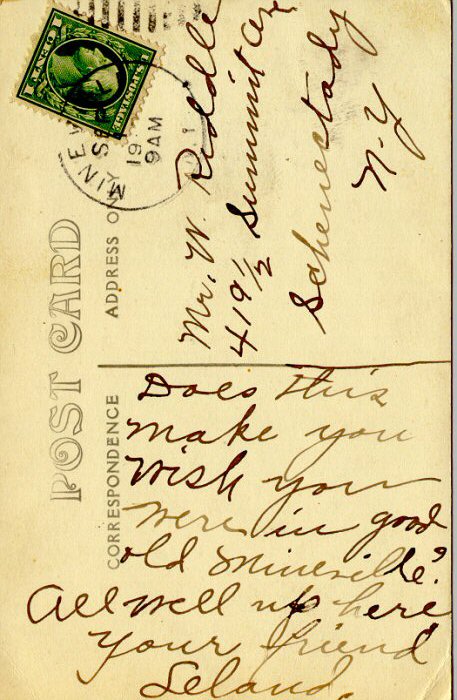 POST CARD
CORRESPONDENCE
ADDRESS ONLY
MINEV
SE
19
9 AM
Mr. W. Riddle
419 1/2 Summit Av
Schenectady
N-Y
Does this
make you
wish you
were in good
old Mineville?
All well up here
Your friend
Leland.